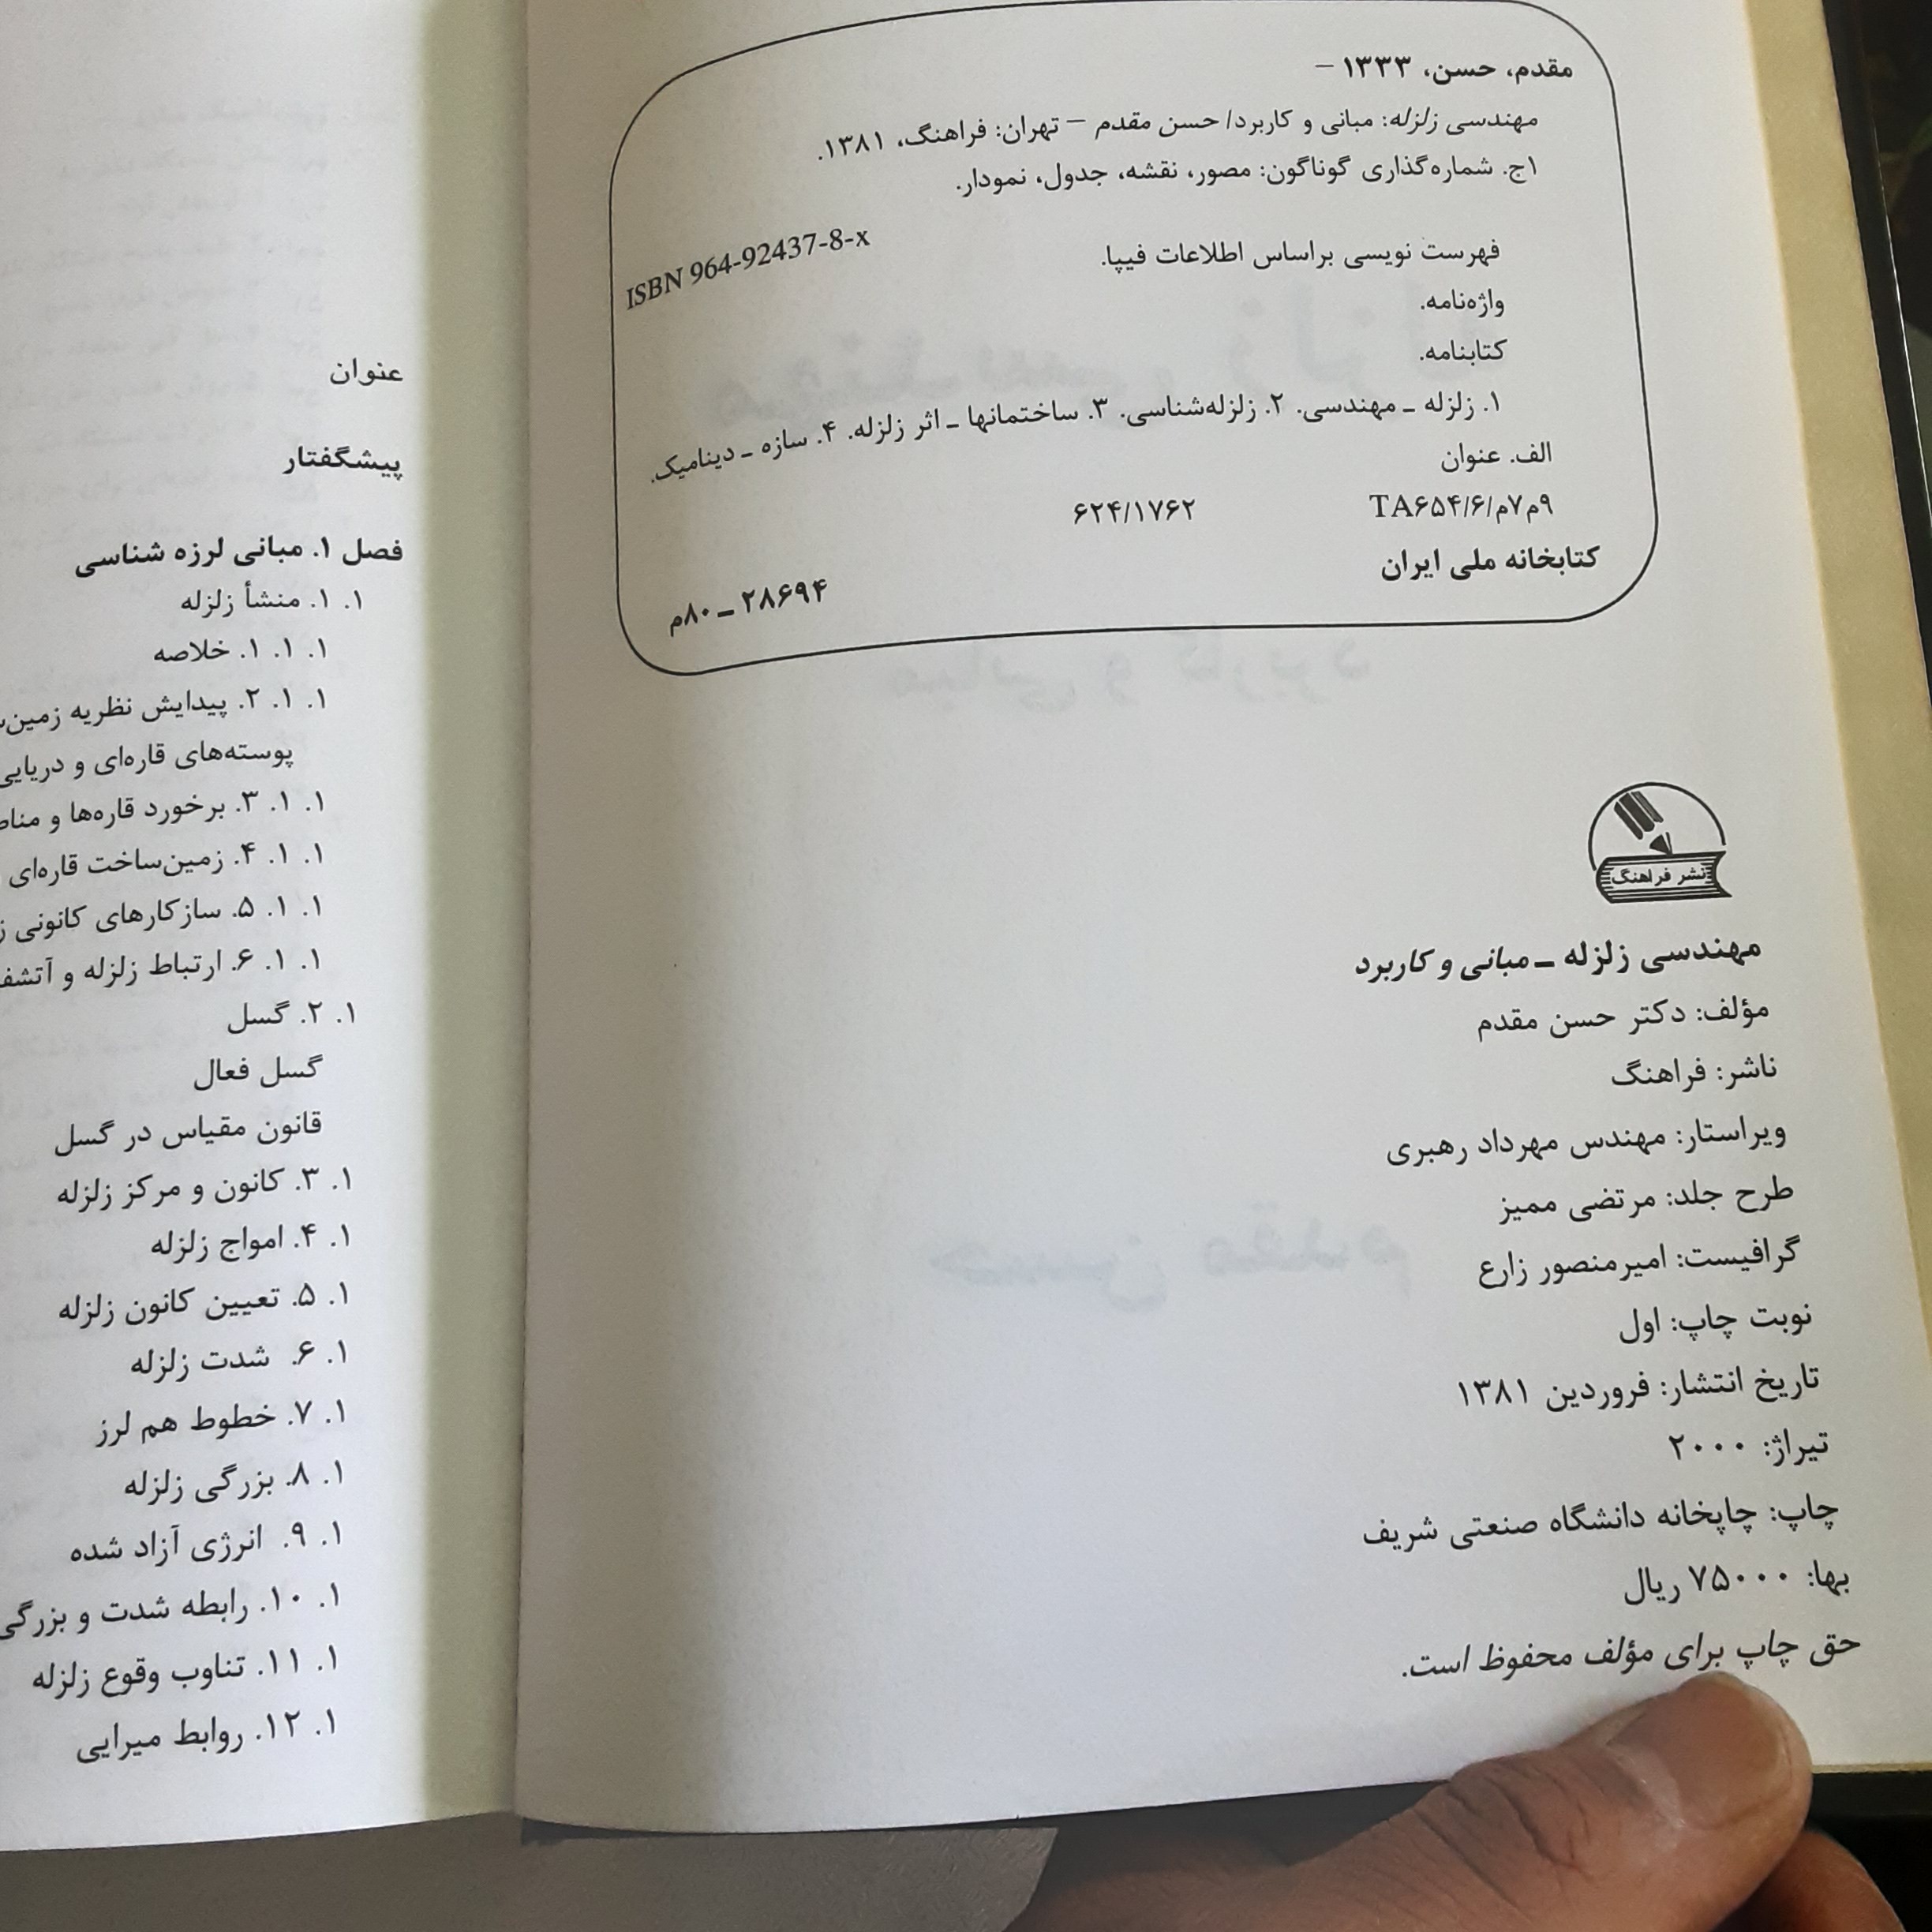 مقدم، حسن، ۱۳۳۳ –
مهندسی زلزله: مبانی و کاربرد/ حسن مقدم – تهران: فراهنگ، ۱۳۸۱.
۱ج. شماره‌گذاری گوناگون: مصور، نقشه، جدول، نمودار.
ISBN 964-92437-8-x
فهرست نویسی براساس اطلاعات فیپا.
واژه‌نامه.
کتابنامه.
۱. زلزله ـ مهندسی. ۲. زلزله‌شناسی. ۳. ساختمانها ـ اثر زلزله. ۴. سازه ـ دینامیک.
الف. عنوان
۹م۷م/۶/TA۶۵۴ ۶۲۴/۱۷۶۲
کتابخانه ملی ایران
۲۸۶۹۴ ـ ۸۰م
نشر فراهنگ
مهندسی زلزله ـ مبانی و کاربرد
مؤلف: دکتر حسن مقدم
ناشر: فراهنگ
ویراستار: مهندس مهرداد رهبری
طرح جلد: مرتضی ممیز
گرافیست: امیرمنصور زارع
نوبت چاپ: اول
تاریخ انتشار: فروردین ۱۳۸۱
تیراژ: ۲۰۰۰
چاپ: چاپخانه دانشگاه صنعتی شریف
بها: ۷۵۰۰۰ ریال
حق چاپ برای مؤلف محفوظ است.
عنوان
پیشگفتار
فصل ۱. مبانی لرزه شناسی
۱. ۱. منشأ زلزله
۱. ۱. ۱. خلاصه
۱. ۱. ۲. پیدایش نظریه
پوسته‌های قاره‌ای و دریایی
۱. ۱. ۳. برخورد قاره‌ها و
۱. ۱. ۴. زمین‌ساخت قاره‌ای
۱. ۱. ۵. سازکارهای کانونی
۱. ۱. ۶. ارتباط زلزله و
۱. ۲. گسل
گسل فعال
قانون مقیاس در گسل
۱. ۳. کانون و مرکز زلزله
۱. ۴. امواج زلزله
۱. ۵. تعیین کانون زلزله
۱. ۶. شدت زلزله
۱. ۷. خطوط هم لرز
۱. ۸. بزرگی زلزله
۱. ۹. انرژی آزاد شده
۱. ۱۰. رابطه شدت و بزرگی
۱. ۱۱. تناوب وقوع زلزله
۱. ۱۲. روابط میرایی